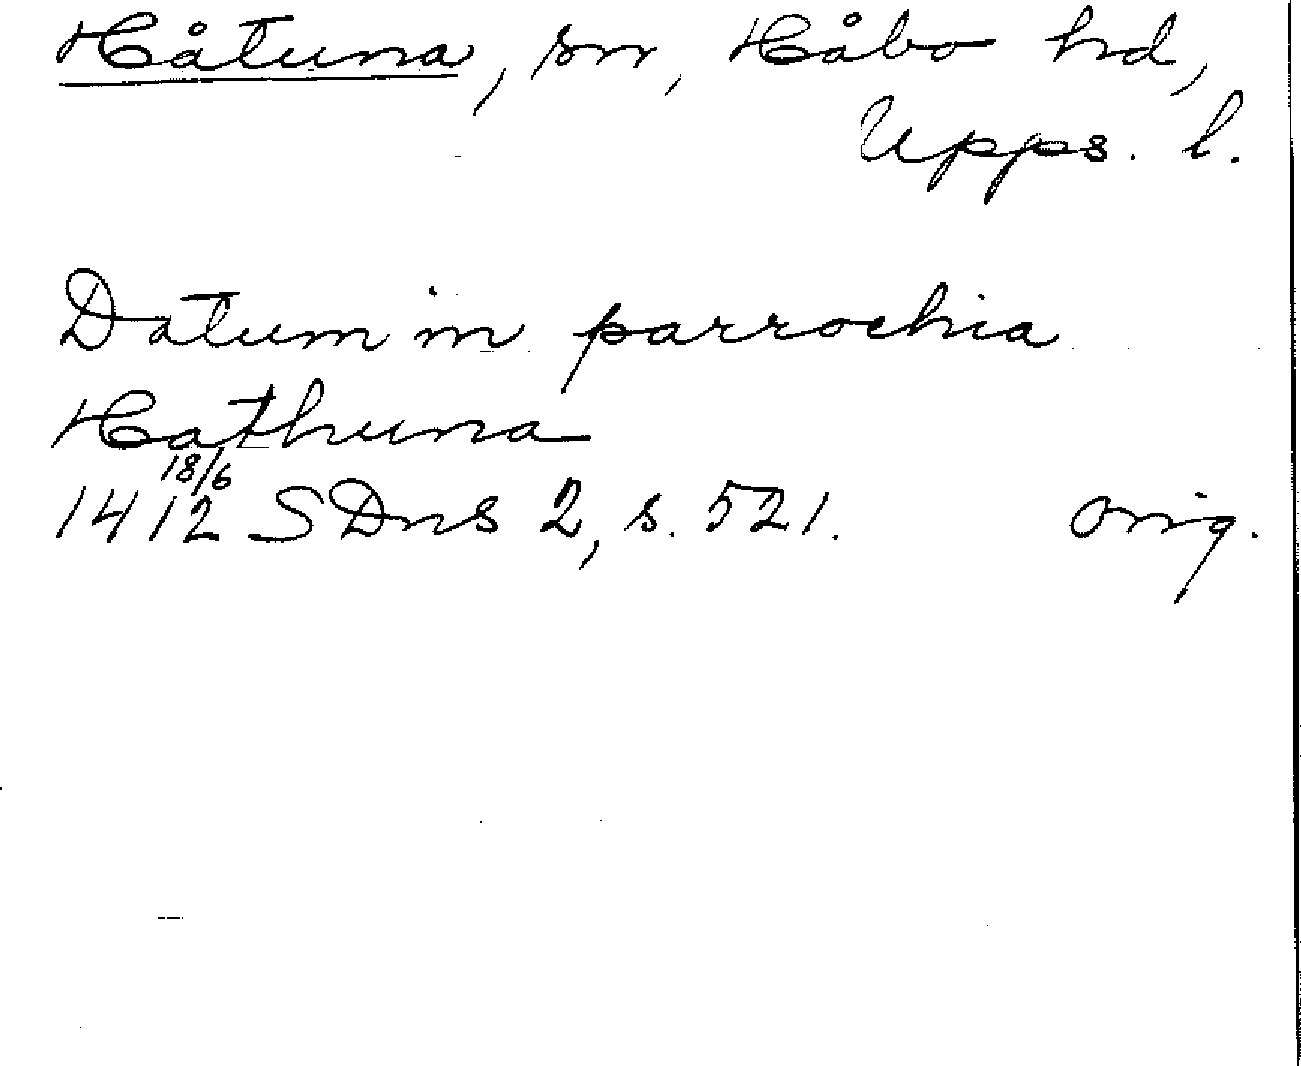 Håtuna, sn, Håbo hd,
Upps. l.
Datum in parrochia
Hathuna
18/6
1412 SDns 2, s. 521. Orig.